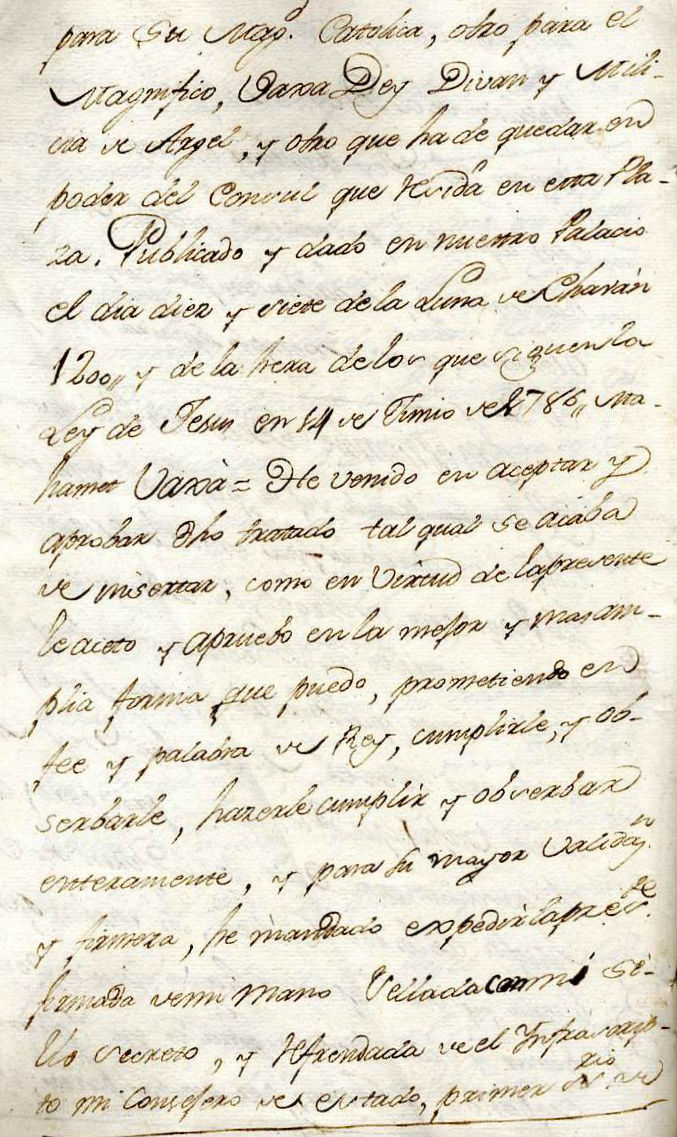 para Su Mag.d Catolica, otro para el
Magnifico, Vaxa Dey Divan y Mili-
cia de Argel, y otro que ha de quedar en
poder del Consul que resida en esta Pla-
za. Publicado y dado en nuestro Palacio
el dia diez y siete de la Luna de Chavàn
1200,, y de la hera de los que siguen la
Ley de Jesus en 14 de Junio de 1786,, Ma-
hamet Vaxà = He venido en aceptar y
aprobar dho tratado tal qual se acaba
de insertar, como en virtud de la presente
le aceto y apruebo en la mejor y mas am-
plia forma que puedo, prometiendo en
fee y palabra de Rey, cumplirle, y ob-
serbarle, hazerle cumplir y obserbar
enteramente, y para su mayor validaz.n
y firmeza, he mandado expedir la pres.te
firmada de mi mano Sellada con mi Se-
llo secreto, y refrendada de el Infrascrip-
to mi Consejero de estado, primer Srio. de